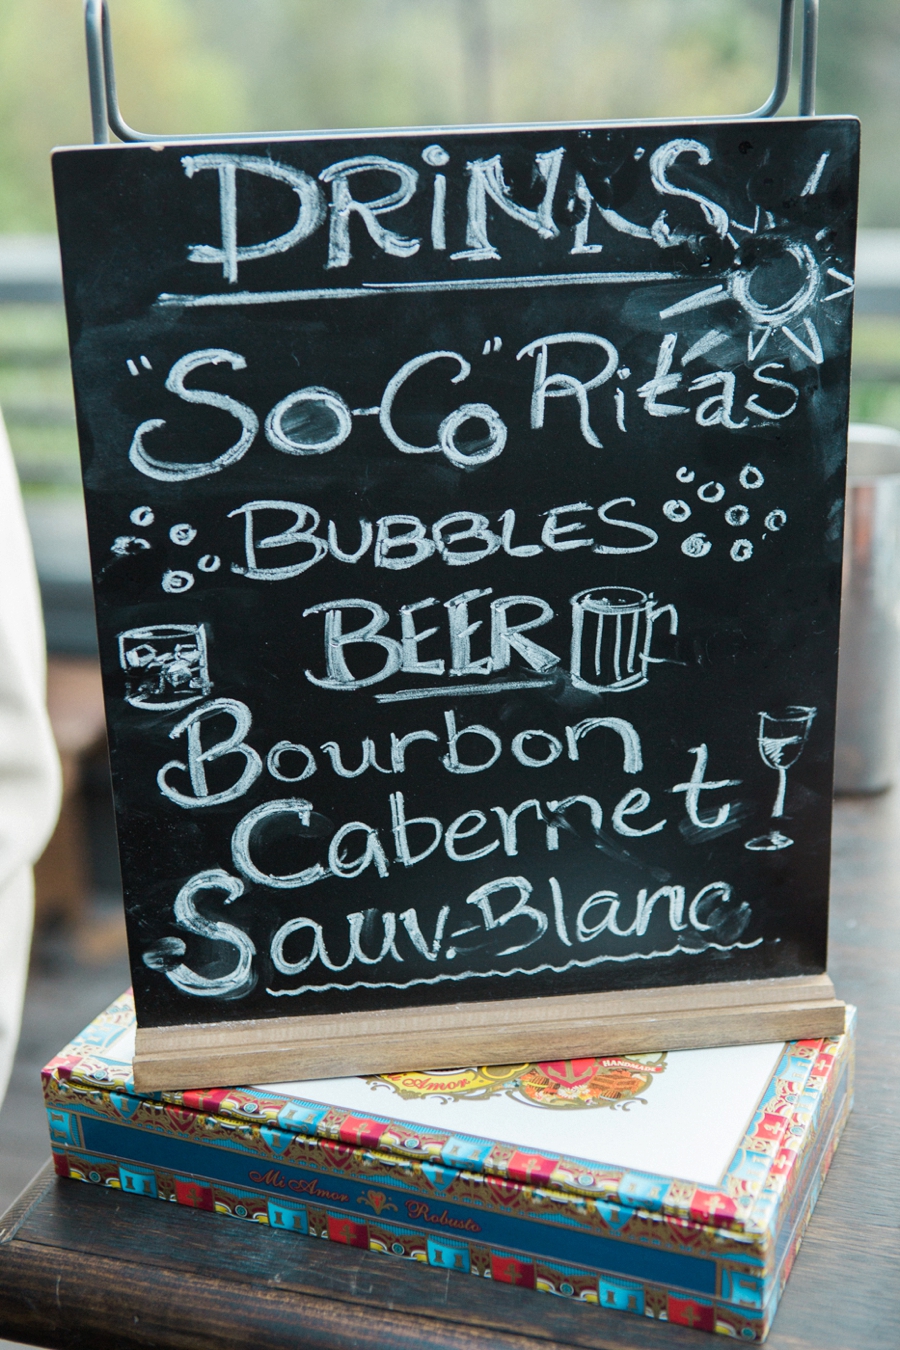 DRiNKS
"So-Co" Ritas
BUBBLES
BEER
Bourbon
Cabernet
Sauv.-Blanc
Amor
HANDMADE
Mi Amor Robusto